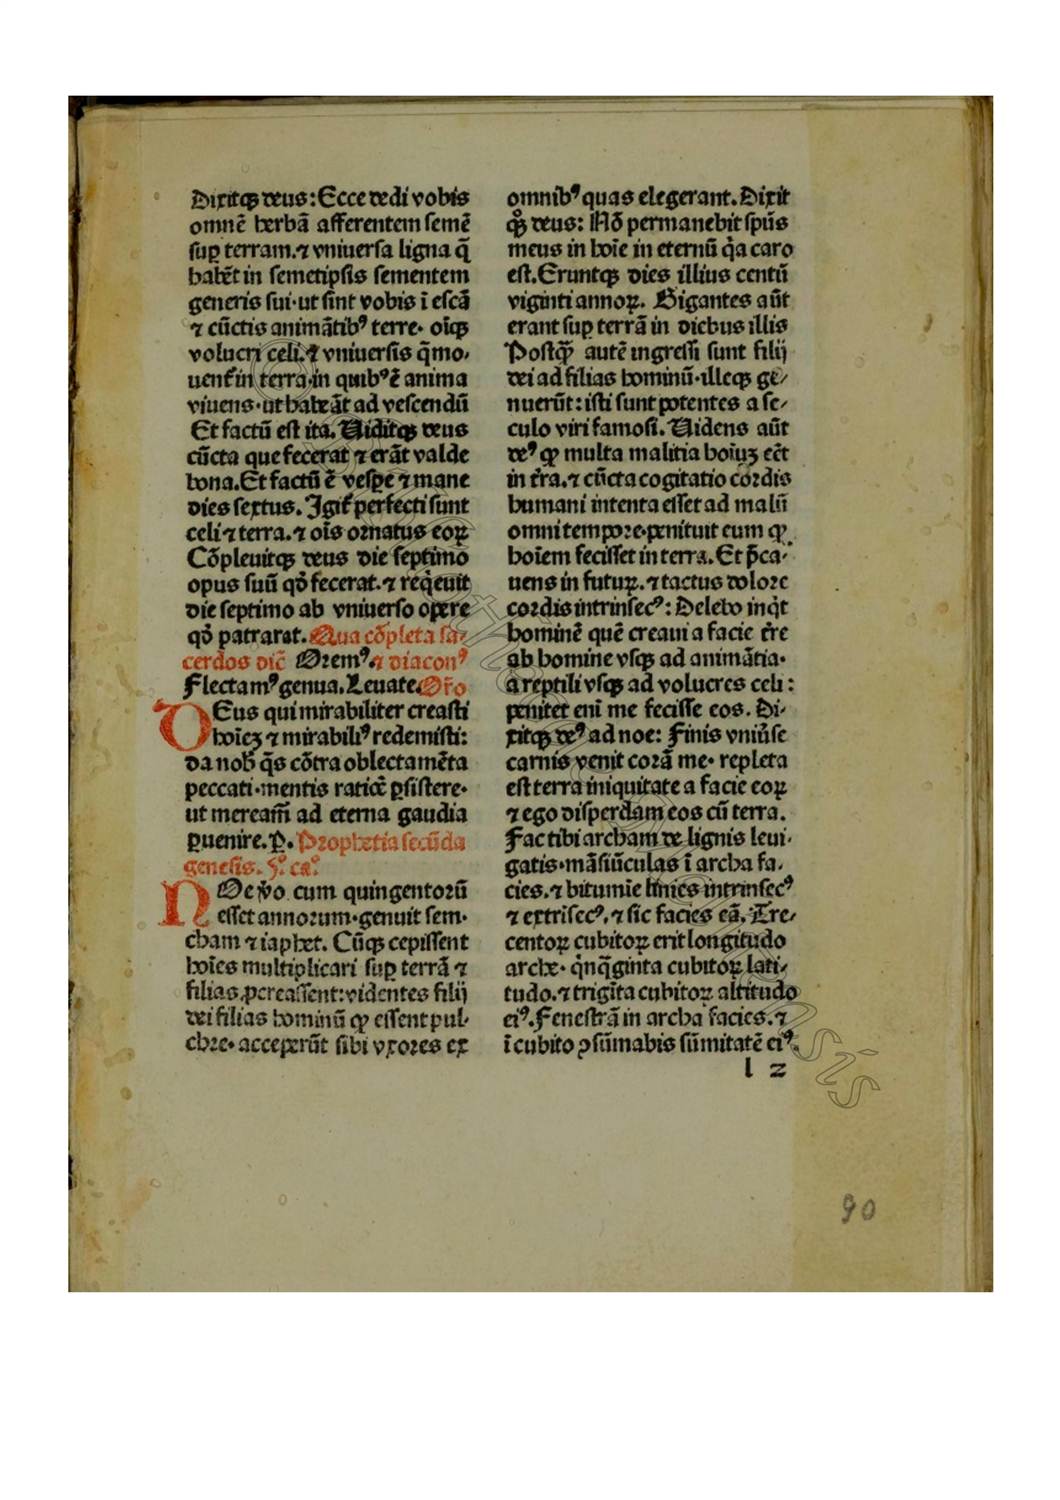 Dixitqꝫ deus: Ecce dedi vobis
omnē herbā afferentem semē
suꝑ terram.⁊ vniuersa ligna q̄
habēt in semetipsis sementem
generis sui·ut sint vobis ī escā
⁊ cūctis animātibꝰ terre· oīqꝫ
volucri celi.⁊ vniuersis q̄mo⸗
uent᷑in terra·in quibꝰē anima
viuens·ut habeāt ad vescendū
Et factū est ita. Uiditqꝫ deus
cūcta que fecerat ⁊ erāt valde
bona.Et factū ē vesꝑe ⁊ mane
dies sextus. Igit᷑ perfecti sunt
celi ⁊ terra.⁊ oīs ornatus eoꝝ
Cōpleuitqꝫ deus die septimo
opus suū qd̕ fecerat.⁊ reqͥeuit
die septimo ab vniuerso opere
qd̕ patrarat. Qua cōpleta sa⸗
cerdos dic̄ Oremꝰ.⁊ diaconꝰ
Flectamꝰ genua. Leuate. Or̄o
DEus qui mirabiliter creasti
hoīeꝫ ⁊ mirabiliꝰ redemisti:
da nob̄ q̄s cōtra oblectamēta
peccati·mentis ratiōe ꝑsistere·
ut meream̄ ad eterna gaudia
ꝑuenire. ꝑ. Prophetia secūda
genesis. 5º. caº.
NOe v̕o cum quingentorū
esset annorum·genuit sem·
cham ⁊ iaphet. Cūqꝫ cepissent
hoīes multiplicari suꝑ terrā ⁊
filias ꝓcreassent:videntes filij
dei filias hominū ꝙ essent pul·
chre· acceperūt sibi vxores ex
omnibꝰ quas elegerant. Dixit
qꝫ deus: Nō permanebit spūs
meus in hoīe in eternū qͥa caro
est. Eruntqꝫ dies illius centū
viginti annoꝝ. Gigantes aūt
erant suꝑ terrā in diebus illis
Postqͣꝫ autē ingressi sunt filij
dei ad filias hominū·illeqꝫ ge⸗
nuerūt: isti sunt potentes a se⸗
culo viri famosi. Uidens aūt
deꝰ ꝙ multa malitia hoīuꝫ eēt
in tr̄a.⁊ cūcta cogitatio cordis
humani intenta esset ad malū
omni tempore·penituit eum ꝙ
hoīem fecisset in terra. Et p̄ca·
uens in futuꝝ.⁊ tactus dolore
cordis intrinsecꝰ: Delebo inqͥt
hominē quē creaui a facie tr̄e
ab homine vsqꝫ ad animātia·
a reptili vsqꝫ ad volucres celi:
penitet enī me fecisse eos. Di⸗
xitqꝫ deꝰ ad noe: Finis vniu̕se
carnis venit corā me· repleta
est terra iniquitate a facie eoꝝ
⁊ ego disperdam eos cū terra.
Fac tibi archam de lignis leui·
gatis·māsiūculas ī archa fa⸗
cies.⁊ bitumīe linies intrinsecꝰ
⁊ extrīsecꝰ.⁊ sic facies eā. Tre⸗
centoꝝ cubitoꝝ erit longitudo
arche· qͥnqͣginta cubitoꝝ lati⸗
tudo.⁊ trigīta cubitoꝝ altitudo
eiꝰ. Fenestrā in archa facies.⁊
ī cubito ꝯsūmabis sūmitatē eiꝰ.
l 2
90